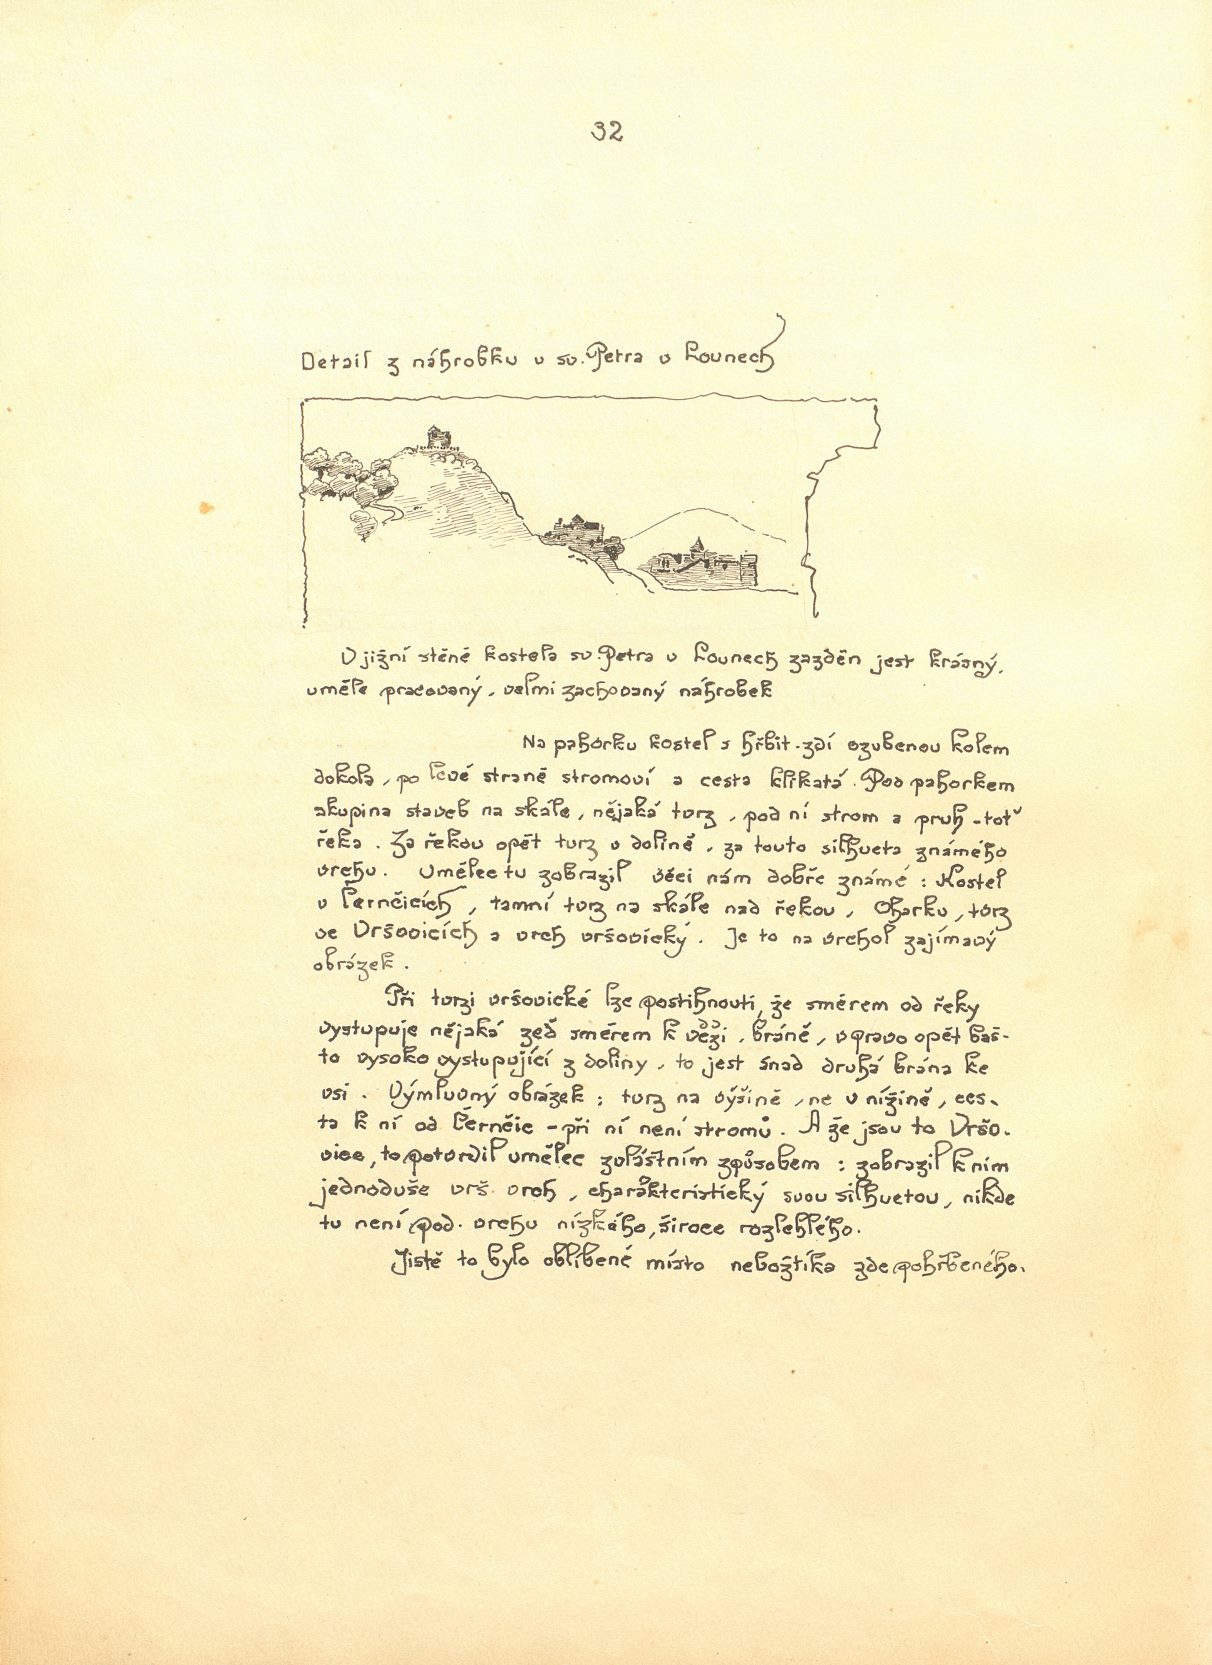 32
Detail z náhrobku u sv. Petra v Lounech
V jižní stěně kostela sv. Petra v Lounech zazděn jest krásný,
uměle pracovaný, velmi zachovaný náhrobek
Na pahorku kostel s hřbit. zdí ozubenou kolem
dokola, po levé straně stromoví a cesta klikatá. Pod pahorkem
skupina staveb na skále, nějaká tvrz, pod ní strom a pruh - toť
řeka. Za řekou opět tvrz v dolině, za touto silhueta známého
vrchu. Umělec tu zobrazil věci nám dobře známé: Kostel
v Černčicích, tamní tvrz na skále nad řekou, Oharku, tvrz
ve Vršovicích a vrch vršovický. Je to na vrchol zajímavý
obrázek.
Při tvrzi vršovické lze postihnouti, že směrem od řeky
vystupuje nějaká zeď směrem k věži, bráně, vpravo opět baš-
ta vysoko vystupující z doliny, to jest snad druhá brána ke
vsi. Výmluvný obrázek: tvrz na výšině, ne v nížině, ces-
ta k ní od Černčic - při ní není stromů. A že jsou to Vršo-
vice, to potvrdil umělec zvláštním způsobem: zobrazil k nim
jednoduše vrš. vrch, charakteristický svou silhuetou, nikde
tu není pod. vrchu nízkého, široce rozlehlého.
Jistě to bylo oblíbené místo nebožtíka zde pohřbeného.